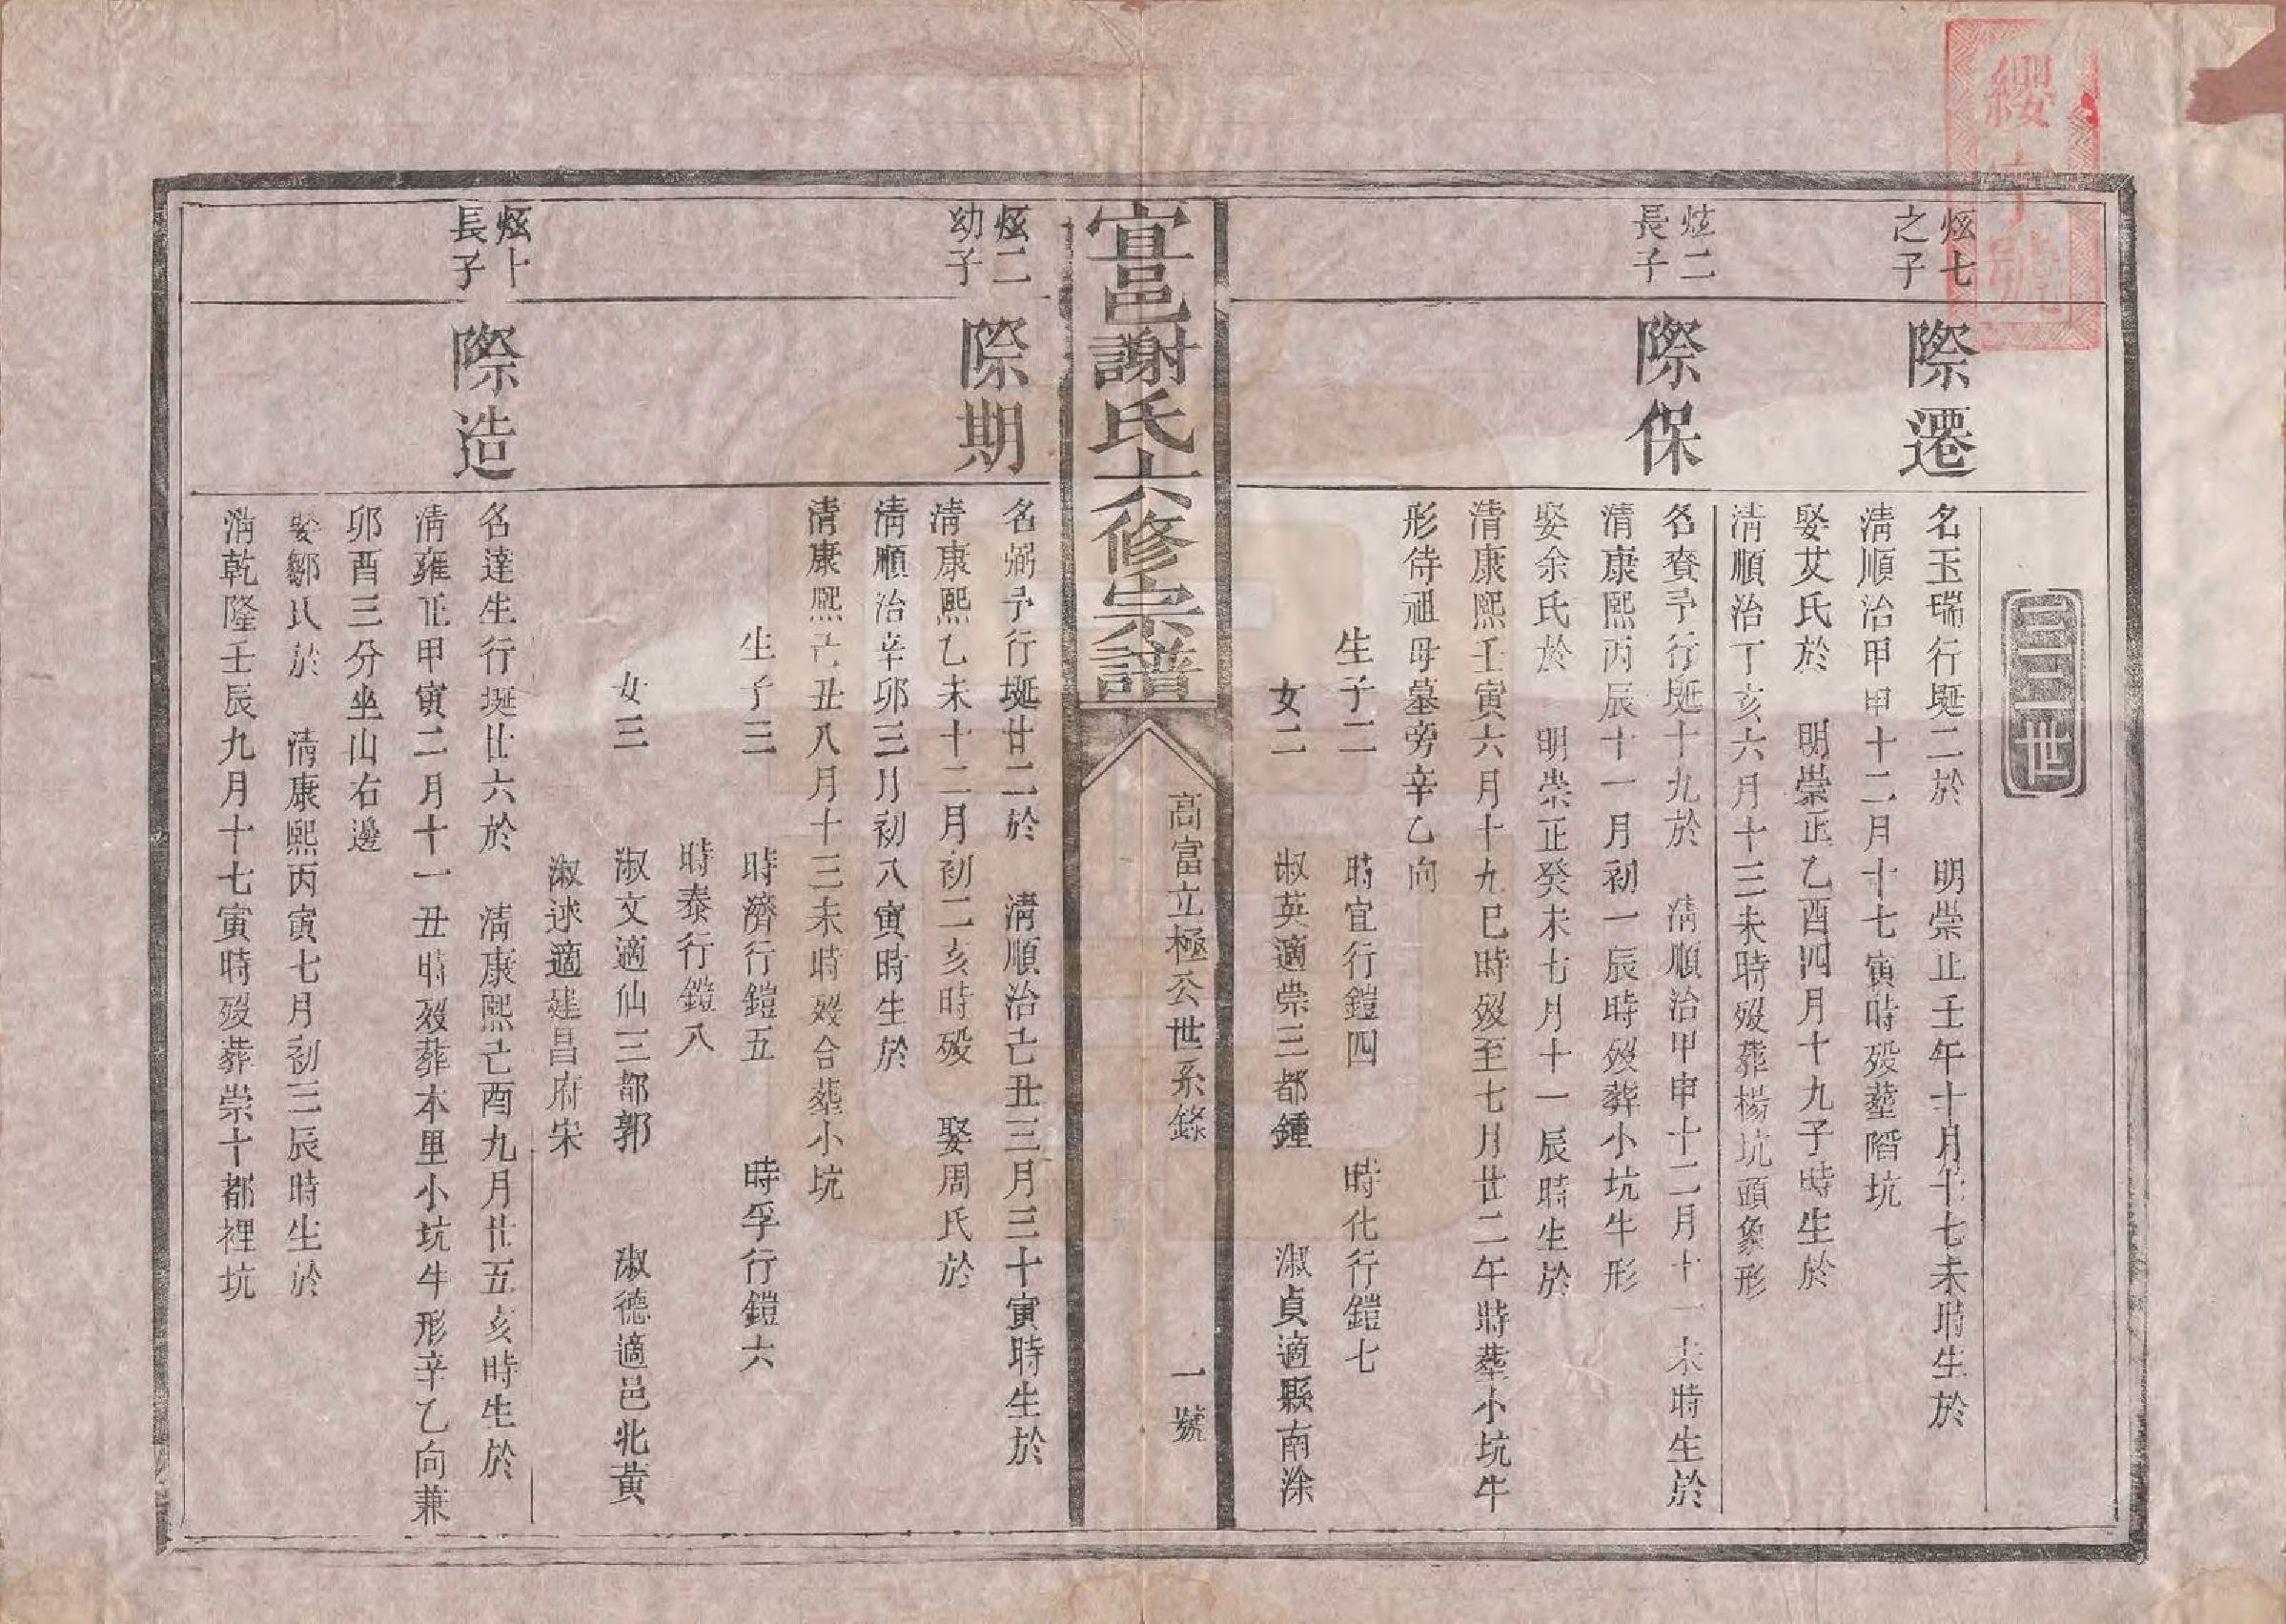 纓字號
三二世
炫七
之子
際遷
名玉瑞行埏二於　明崇正壬午十月十七未時生於
清順治甲申十二月十七寅時殁塟𨺗坑
娶艾氏於　明崇正乙酉四月十九子時生於
清順治丁亥六月十三未時殁葬楊坑頭象形
炫二
長子
際保
名賚予行埏十九於　清順治甲申十二月十一未時生於
清康熙丙辰十一月初一辰時殁葬小坑牛形
娶余氏於　明崇正癸未七月十一辰時生於
清康熙壬寅六月十九巳時殁至七月廿二午時塟小坑牛
形待祖母墓旁辛乙向
生子二　時宜行鎧四　時化行鎧七
女二　淑英適崇三都鍾　淑貞適縣南涂
宜邑謝氏六修宗譜
高富立極公世系錄
一號
炫二
幼子
際期
名弼予行埏廿二於　清順治己丑三月三十寅時生於
清康熙乙未十二月初二亥時殁　娶周氏於
清順治辛卯三月初八寅時生於
清康熙己丑八月十三未時殁合塟小坑
生子三　時濟行鎧五　時孚行鎧六
時泰行鎧八
女三　淑文適仙三都郭　淑德適邑北黄
淑逑適建昌府宋
炫十
長子
際造
名達生行埏廿六於　清康熙己酉九月廿五亥時生於
清雍正甲寅二月十一丑時殁葬本里小坑牛形辛乙向兼
卯酉三分坐山右邊
娶鄒氏於　清康熙丙寅七月初三辰時生於
清乾隆壬辰九月十七寅時殁葬崇十都裡坑